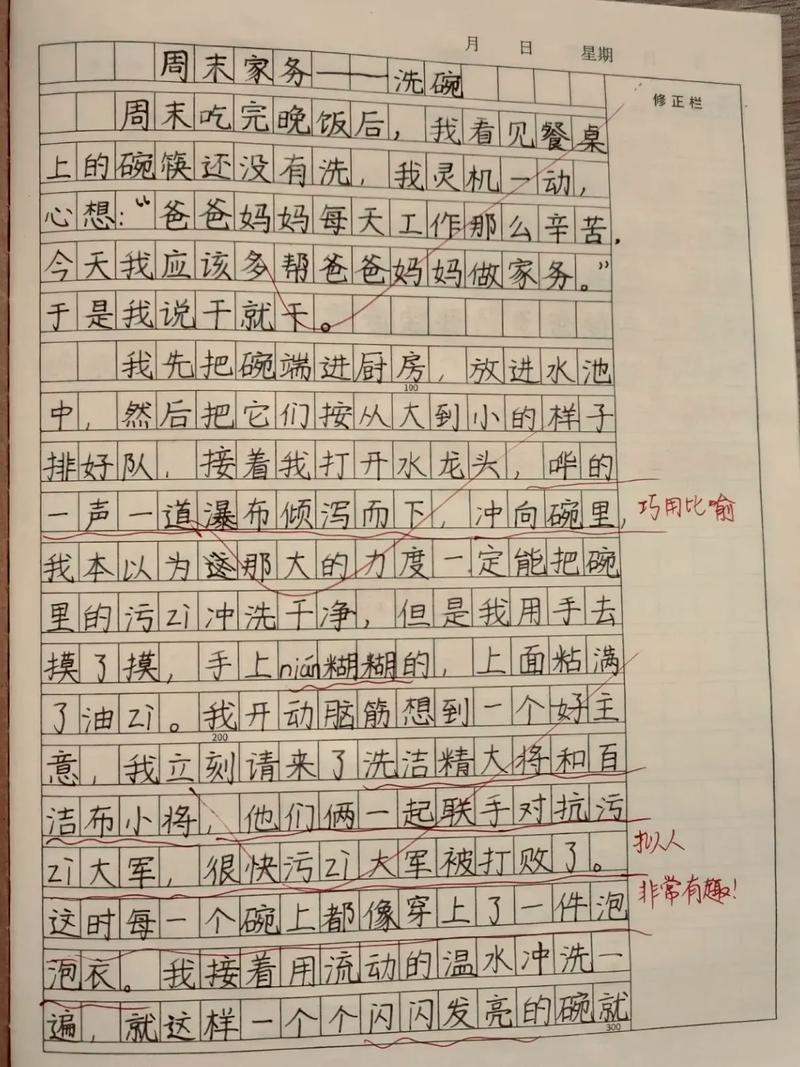 月 日 星期
修正栏
周末家务——洗碗
周末吃完晚饭后，我看见餐桌
上的碗筷还没有洗，我灵机一动，
心想：“爸爸妈妈每天工作那么辛苦，
今天我应该多帮爸爸妈妈做家务。”
于是我说干就干。
我先把碗端进厨房，放进水池
100
中，然后把它们按从大到小的样子
排好队，接着我打开水龙头，哗的
一声一道瀑布倾泻而下，冲向碗里，
巧用比喻
我本以为这那大的力度一定能把碗
里的污zì冲洗干净，但是我用手去
摸了摸，手上nián糊糊的，上面粘满
了油zì。我开动脑筋想到一个好主
200
意，我立刻请来了洗洁精大将和百
洁布小将，他们俩一起联手对抗污
zì大军，很快污zì大军被打败了。
拟人
非常有趣！
这时每一个碗上都像穿上了一件泡
泡衣。我接着用流动的温水冲洗一
遍，就这样一个个闪闪发亮的碗就
300